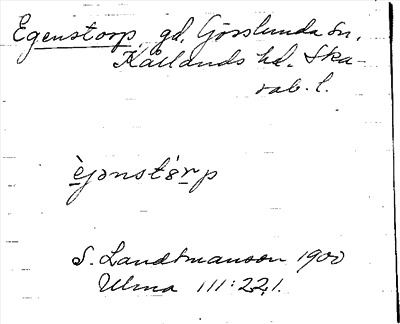 Egenstorp, gd, Gösslunda sn,
Kållands hd. Ska-
rab. l.
S. Landtmanson 1900
Ulma 111:221.